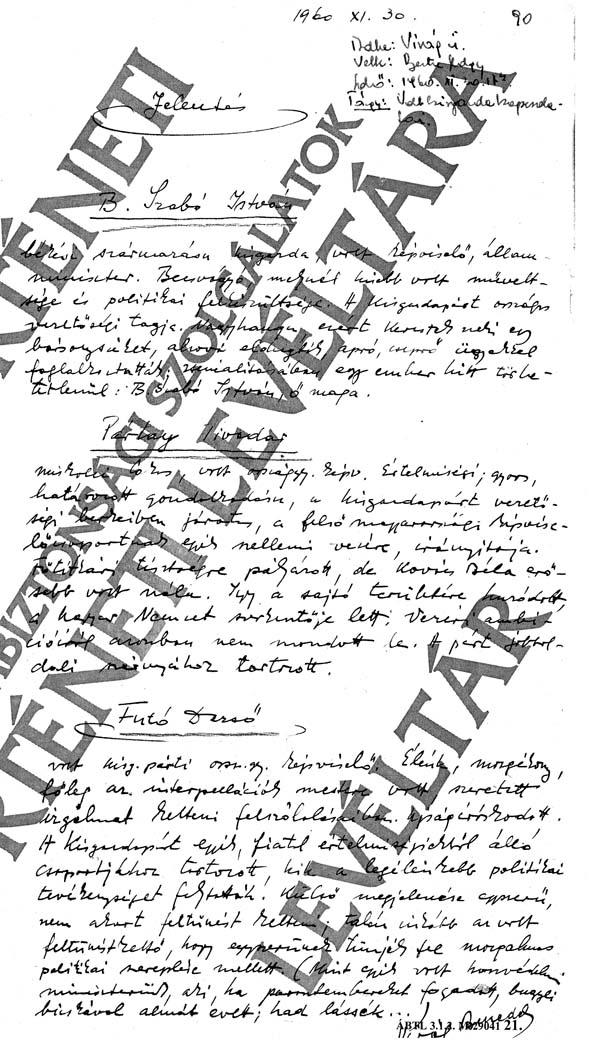 1960 XI. 30.
90
Adta: Virág ü.
Vette:
Idő: 1960. XI. 30.
Tárgy: Volt kisgazda kapcsola-
tai.
Jelentés
B. Szabó István
békési származású kisgazda, volt képviselő, állam-
miniszter. Becsvágya melynél kisebb volt művelt-
sége és politikai felkészültsége. A Kisgazdapárt országos
vezetőségi tagja. Nagyhangú, ezért kerestek neki egy
bársonyszéket, ahová elhelyezték, apró, cseprő ügyekkel
foglalkoztatták, egy ember hitt törhe-
tetlenül: B. Szabó István, ő maga.
Pártay Tivadar
miskolci, volt országgy. képv. Értelmiségi, gyors,
határozott gondolkodású, a kisgazdapárt vezető-
ségi berkeiben járatos, a felsőmagyarországi képvise-
lőcsoportnak egyik szellemi vezére, irányítója.
Főtitkári tisztségre pályázott, de Kovács Béla erő-
sebb volt nála. Így a sajtó területére húzódott,
a Magyar Nemzet szerkesztője lett. Vezéri ambí-
cióiról azonban nem mondott le. A párt jobbol-
dali szárnyához tartozott.
Futó Dezső
volt kisg. párti orsz. gy. képviselő. Élénk, mozgékony,
főleg az interpellációk mestere volt, szeretett
izgalmat kelteni felszólalásaiban. Újságíróskodott.
A Kisgazdapárt egyik, fiatal értelmiségiekből álló
csoportjához tartozott, kik a legélénkebb politikai
tevékenységet folytatták. Külső megjelenése egyszerű,
nem akart feltűnést kelteni, talán inkább az volt
feltűnést keltő, hogy egyszerűnek tűnjék fel mozgalmas
politikai szereplése mellett. (Mint egyik volt honvédelmi
miniszterünk, aki, ha parasztembereket fogadott, bugylibicskával almát evett; had lássék...)
ÁBTL 3.1.2. M-29041 21.
TÖRTÉNETI
ÁLLAMBIZTONSÁGI SZOLGÁLATOK
TÖRTÉNETI LEVÉLTÁRA
LEVÉLTÁRA